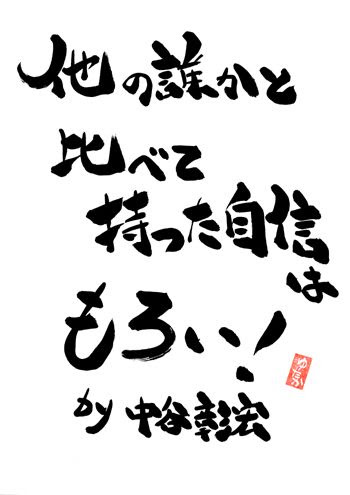 他の誰かと
比べて
持った自信
は
もろい!
by 中谷彰宏
ゆたか